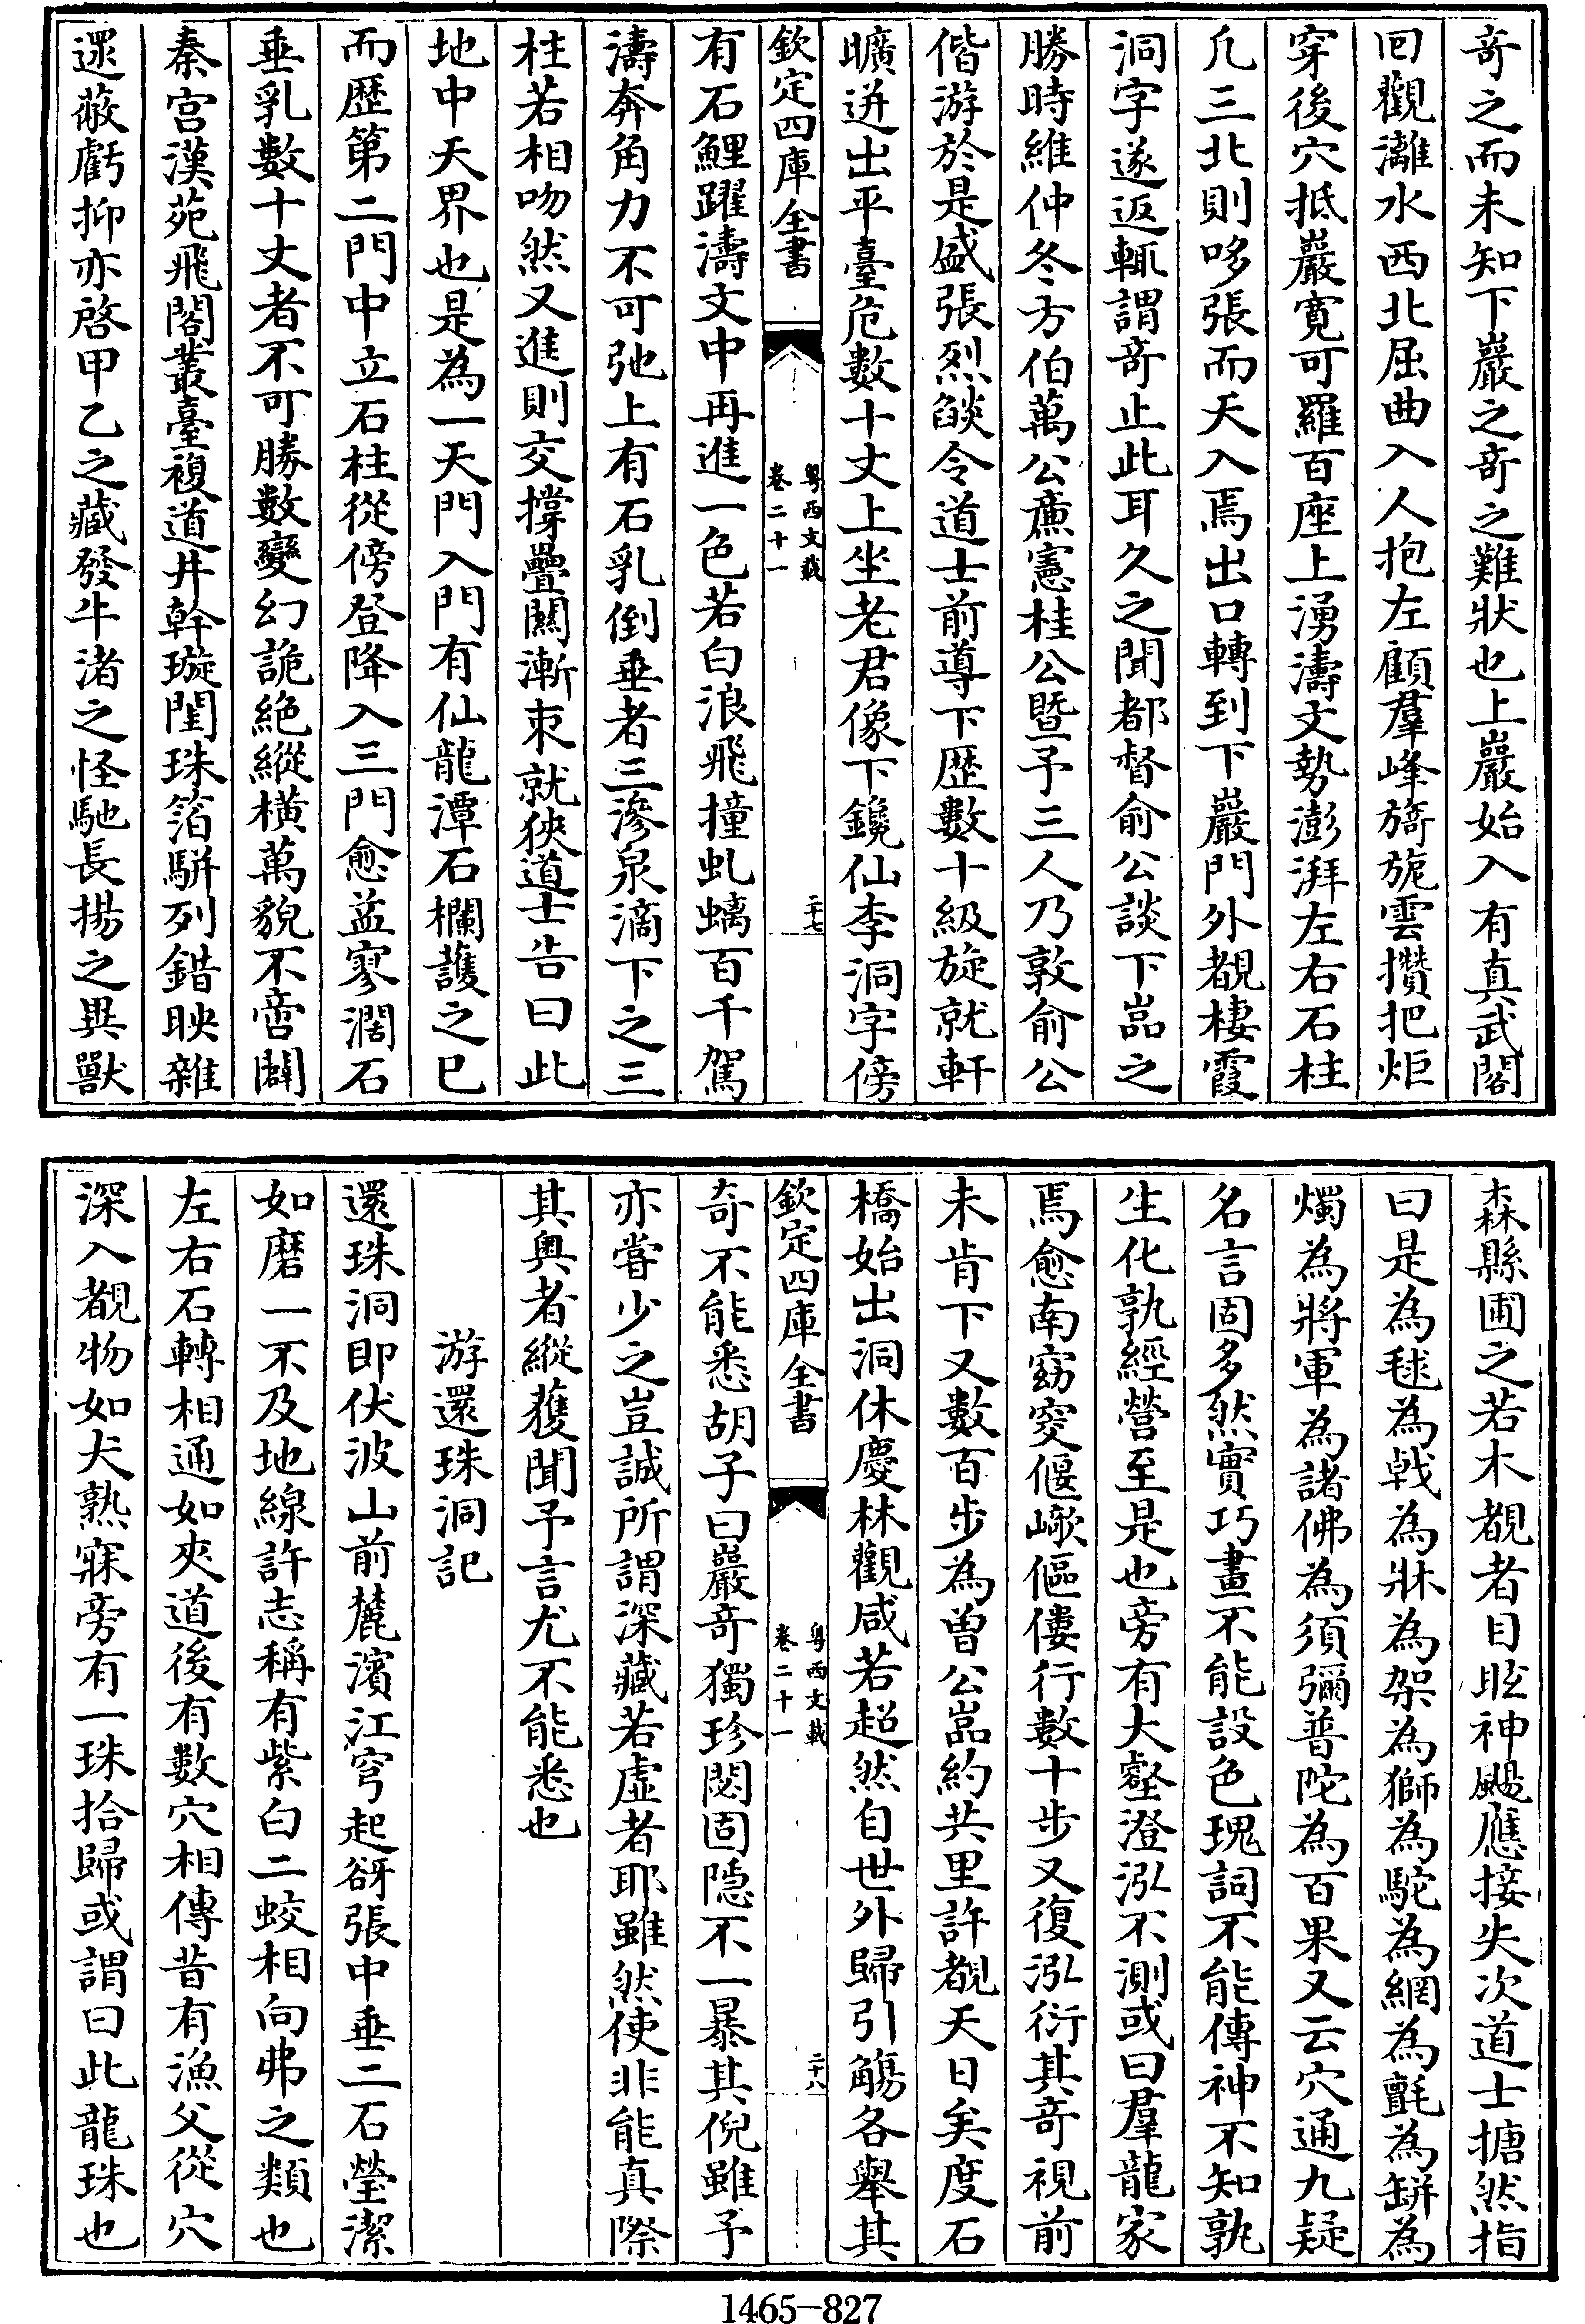 奇之而未知下巖之奇之難狀也上巖始入有真武閣
囘觀灕水西北屈曲入人抱左顧羣峰旖旎雲攢把炬
穿後穴抵巖寛可羅百座上湧濤文勢澎湃左右石柱
凡三北則哆張而天入焉出口轉到下巖門外覩棲霞
洞字遂返輒謂奇止此耳久之聞都督俞公談下嵓之
勝時維仲冬方伯萬公㢘憲桂公暨予三人乃敦俞公
偕游於是盛張烈燄令道士前導下歴數十級旋就軒
曠迸出平臺危數十丈上坐老君像下鑱仙李洞字傍
欽定四庫全書
粤西文載
卷二十一
二十七
有石鯉躍濤文中再進一色若白浪飛撞虬螭百千駕
濤奔角力不可弛上有石乳倒垂者三滲泉滴下之三
柱若相吻然又進則交撐疊闗漸朿就狹道士告曰此
地中天界也是為一天門入門有仙龍潭石欄護之已
而歴第二門中立石柱從傍登降入三門愈益寥濶石
垂乳數十丈者不可勝數變幻詭絶縱橫萬貌不啻闢
秦宮漢苑飛閣叢臺複道井幹璇閨珠箔駢列錯映雜
遝蔽虧抑亦啓甲乙之藏發牛渚之怪馳長揚之異獸
森縣圃之若木覩者目眙神颺應接失次道士搪然指
曰是為毬為㦸為牀為架為獅為駝為網為氈為缾為
燭為將軍為諸佛為須彌普陀為百果又云穴通九疑
名言固多然實巧畫不能設色瑰詞不能傳神不知孰
生化孰經營至是也旁有大壑澄泓不測或曰羣龍家
焉愈南窈窔偃㠗傴僂行數十步又復泓衍其奇視前
未肯下又數百步為曽公嵓約共里許覩天日矣度石
橋始出洞休慶林觀咸若超然自世外歸引觴各舉其
欽定四庫全書
粤西文載
卷二十一
二十八
奇不能悉胡子曰巖奇獨珍閟固隠不一暴其倪雖予
亦甞少之豈誠所謂深藏若虚者耶雖然使非能真際
其奥者縱獲聞予言尤不能悉也
游還珠洞記
還珠洞即伏波山前麓濱江穹起谺張中垂二石瑩潔
如磨一不及地線許志稱有紫白二蛟相向弗之類也
左右石轉相通如夾道後有數穴相傳昔有漁父從穴
深入覩物如犬熟寐旁有一珠拾歸或謂曰此龍珠也
1465-827